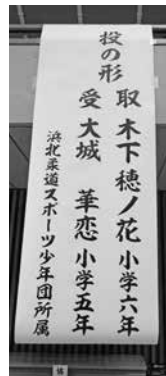 投の形
取 木下 穂ノ花 小学六年
受 大城 華恋 小学五年
浜北柔道スポーツ少年団所属